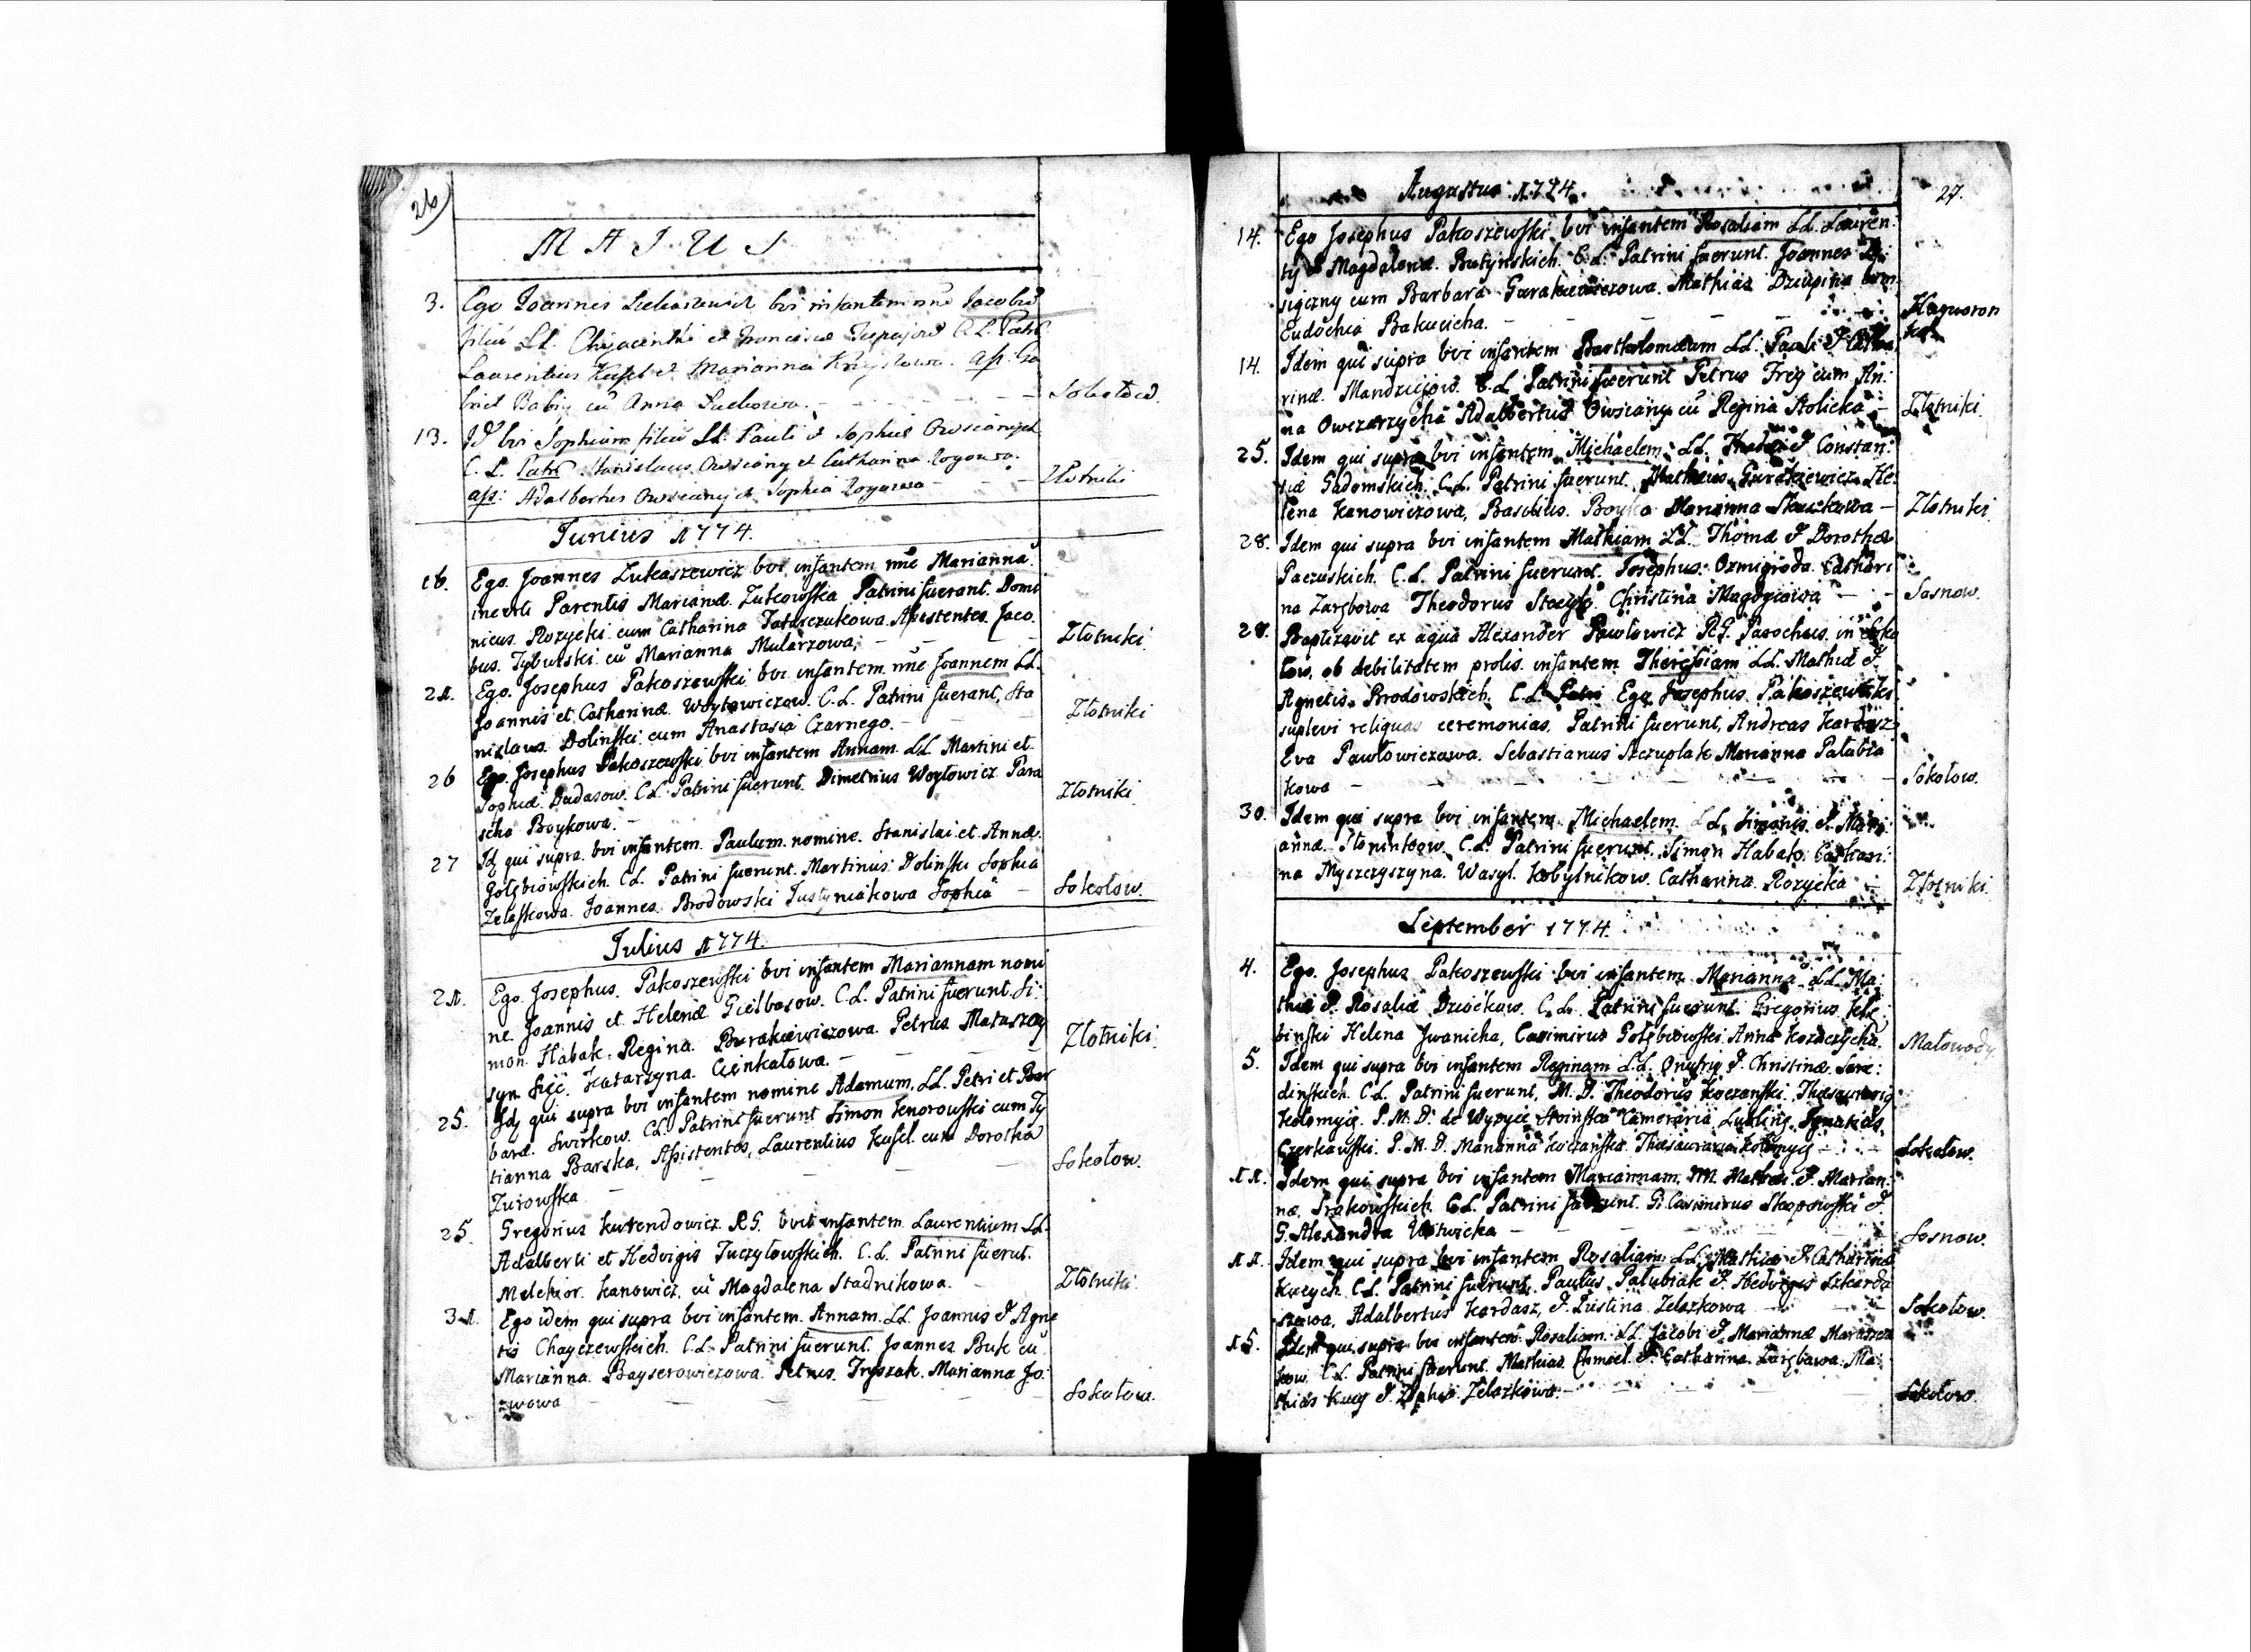 26
MAJUS
3. Ego Joannes Lukaszewicz bvi infantem nne Jacobū
filiū LL. Chyacinthi et Franciscæ C.L. Patr
Laurentius Kusel et Marianna ass: Ga
briel Babij cū Anna Suchowa. Sokołow.
13. Jd bvi Sophiam filiā LL. Pauli & Sophiæ Owsianych
C. L. Patr. Stanislaus Owsiany et Catharina Rogowa.
ass: Adalbertus Owsiany et Sophia Rogowa Złotniki
Junius 1774.
16. Ego. Joannes Lukaszewicz bvi infantem nne Marianna
incerti Parentis Marianæ Zutkowska Patrini fuerant. Domi
nicus. Rozycki cum Catharina Tatarczukowa. Assistentes. Jaco
bus. Tyburski cū Marianna Mularzowa, Złotniki
21. Ego. Josephus Pakoszewski bvi infantem nne Joannem LL.
Joannis et Catharinæ. Woytowiczow. C.L. Patrini fuerant, Sta
nislaus Dolinski cum Anastasia Czarnego. Złotniki
26 Ego. Josephus Pakoszewski bvi infantem Annam LL Martini et
Sophiæ Dudasow. C.L. Patrini fuerunt. Dimetrius Woytowicz Para
scha Boykowa. Złotniki
27 Jd qui supra bvi infantem Paulum nomine. Stanislai et Annæ.
Gołębiowskich. C.L. Patrini fuerunt. Martinus Dolinski Sophia
Zelaskowa. Joannes Brodowski Justyniakowa Sophia Sokołow.
Julius 1774.
21. Ego. Josephus. Pakoszewski bvi infantem Mariannam nomi
ne. Joannis et Helenæ Giełbasow. C.L. Patrini fuerunt. Si:
mon. Habak. Regina. Burakiewiczowa. Petrus. Matuszow
syn Katarzyna. Cięnkałowa. Złotniki
25. Jdq qui supra bvi infantem nomine Adamum, LL. Petri et Bar
baræ. Swirkow. C.L. Patrini fuerunt Simon Kenorowski cum Ty
tianna Barska, Assistentes, Laurentius Kusel cum Dorothea
Zurowska Sokołow.
25. Gregorius Kurendowicz. R.G. bvit infantem Laurentium LL.
Adalberti et Hedvigis Tuczyłowskich. C.L. Patrini fuerut.
Melchior. Kanowicz, cū Magdalena Stadnikowa. Złotniki
31. Ego idem qui supra bvi infantem. Annam. LL. Joannis & Agne
tis Chayczewskich. C.L. Patrini fuerunt. Joannes Buk cū
Marianna. Bayserowiczowa. Petrus. Tryszak. Marianna Jo:
zwowa Sokołow.
Augustus 1774. 27.
14. Ego Josephus Pakoszewski bvi infantem Rosaliam LL. Lauren:
tij & Magdalenæ. Butynskich. C.L. Patrini fuerunt. Joannes
cum Barbara Gurakiewiczowa. Mathias Dziupina cum
Eudochia Bakucicha.
14. Idem qui supra bvi infantem Bartholomæum LL. Pauli & Catha
rinæ. Mandziejow. C.L. Patrini fuerunt Petrus Frey cum An:
na Owczarzycha Adalbertus Owsiany cū Regina Stolicka Złotniki
25. Idem qui supra bvi infantem Michaelem LL. Thadei & Constan:
tiæ Gadomskich. C.L. Patrini fuerunt. Mathæus. Gurakiewicz. He:
lena Kanowiczowa, Basilius. Boyko Marianna Złotniki
28. Idem qui supra bvi infantem Mathiam LL. Thomæ & Dorotheæ
Paczuskich. C.L. Patrini fuerunt. Josephus. Ozmigroda. Cathari
na Zarębowa Theodorus Christina Sosnow.
28. Baptizavit ex aqua Alexander Pawłowicz R.G. Parochus in Soko
łow, ob debilitatem prolis. infantem Theressiam LL. Mathiæ &
Agnetis. Brodowskich. C.L. Patri Ego Josephus Pakoszewski
suplevi reliquas ceremonias, Patrini fuerunt, Andreas Kardasz
Eva Pawłowiczowa. Sebastianus Szczuplak Marianna Palubia
kowa Sokołow.
30. Idem qui supra bvi infantem. Michaelem LL. Simonis & Mari
annæ C.L. Patrini fuerunt, Simon Habak. Cathari:
na Myszczyszyna. Wasyl. Kobylnikow. Catharina Rozycka Złotniki.
September 1774.
4. Ego. Josephus Pakoszewski bvi infantem. Mariannā LL. Ma:
thiæ & Rosaliæ Dziockow. C.L. Patrini fuerunt. Gregorius
Helena Jwanicha, Casimirus Gołębiowski. Anna Kozaczycha. Małowody
5. Idem qui supra bvi infantem Reginam LL. Onufrij & Christinæ.
C.L. Patrini fuerunt, M. D. Theodorus Koczanski. Thesaurarig
Kołomyię. P.M.D. de Wyzyce Stoinska Cameraria Lubling. Ignatius.
Czerkawski. P.M.D. Marianna Koczanska Thesauraria Kołomyię Sokołow.
11. Idem qui supra bvi infantem Mariannam. & Marian:
næ. Trakowskich. C.L. Patrini fuerunt. G. Casimirus &
G. Alexandra Witwicka Sosnow.
11. Idem qui supra bvi infantem Rosaliam LL. Mathiæ & Catharinæ
Kucych. C.L. Patrini fuerunt. Paulus Palubiak & Hedvigis Szkarda
szowa, Adalbertus Kardasz, & Justina Zelazkowa Sokołow.
15. Idem qui supra bvi infantem Rosaliam. LL. Jacobi & Mariannæ
C.L. Patrini fuerunt. Mathias Chmiel & Catharina Zarębowa. Ma:
thias Kucy & Zelazkowa. Sokołow.